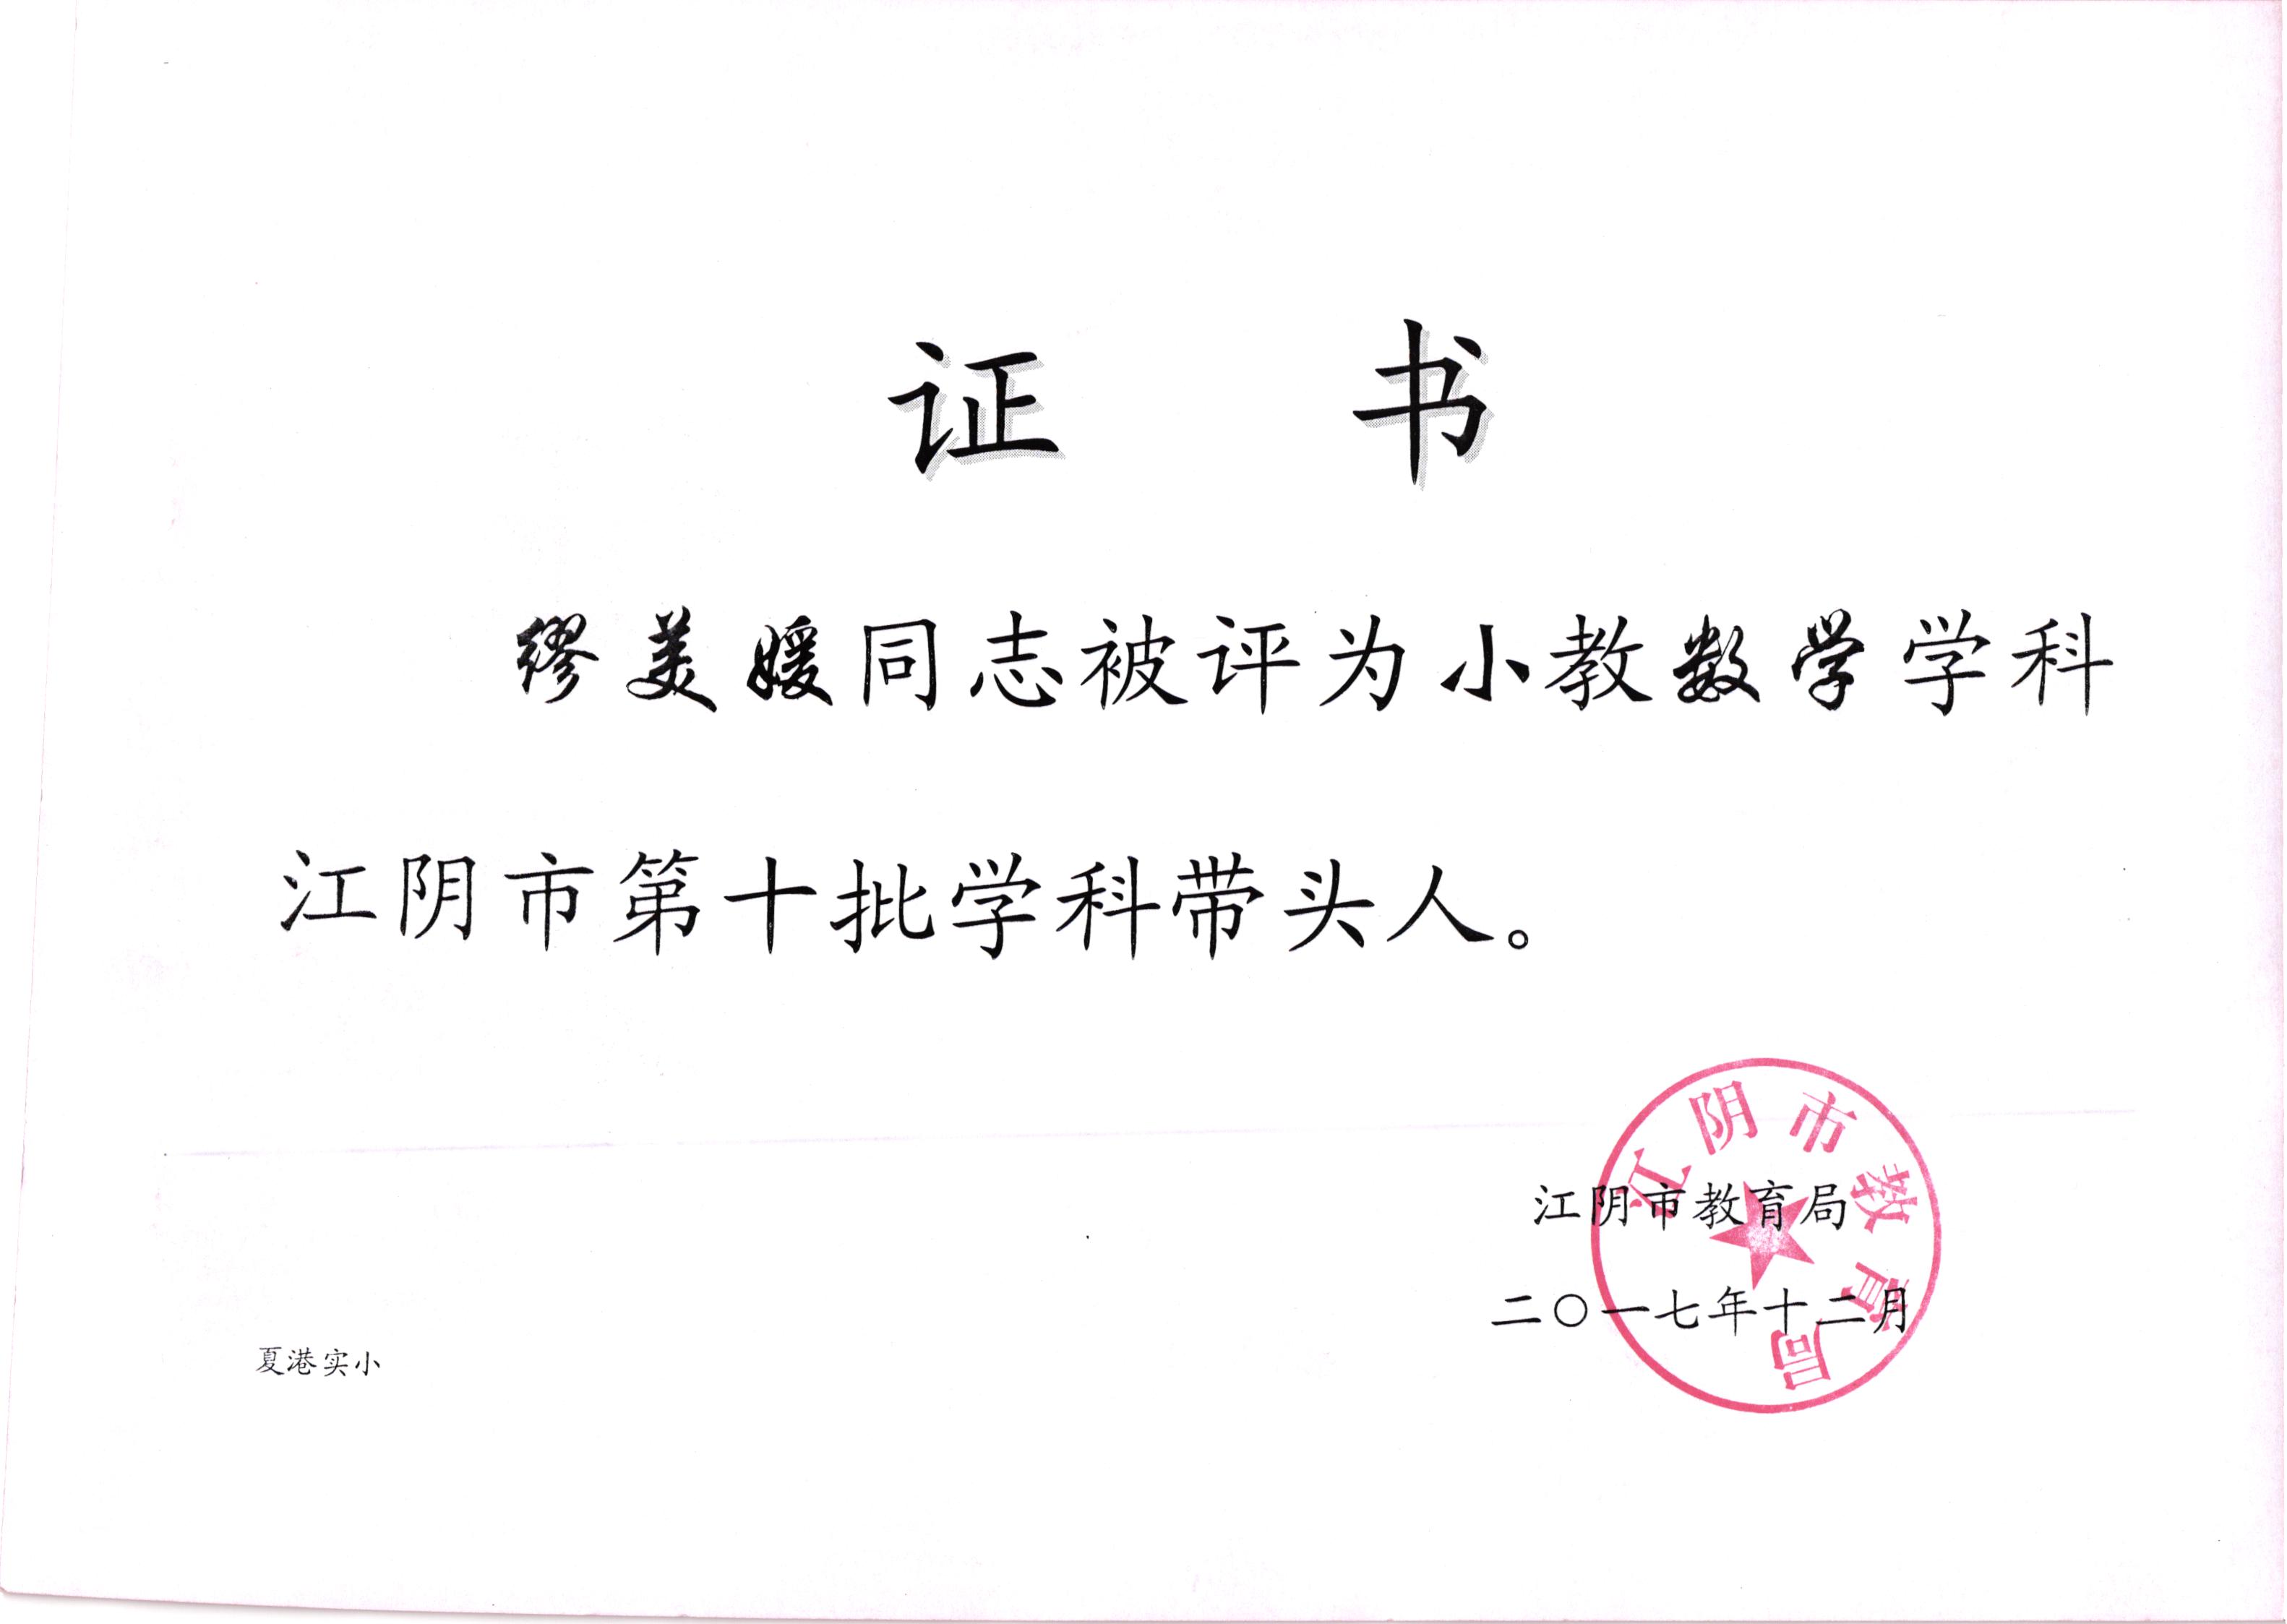 证 书
缪美媛同志被评为小教数学学科
江阴市第十批学科带头人。
江阴市教育局
江阴市教育局
二〇一七年十二月
夏港实小